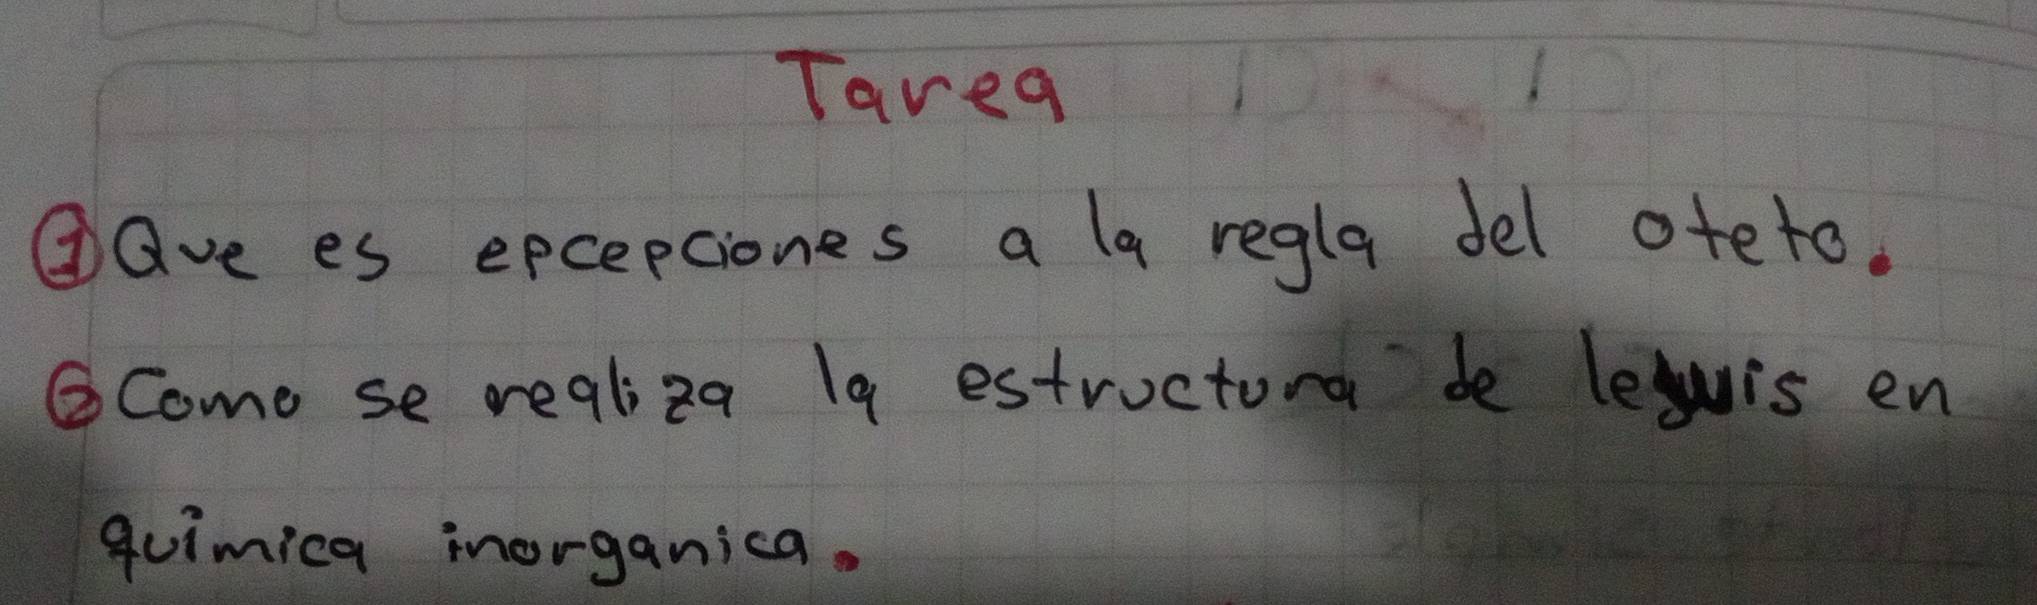 Tarea
① Que es epcepciones a la regla del oteto.
② Como se realiza la estructura de lewis en
química inorganica.